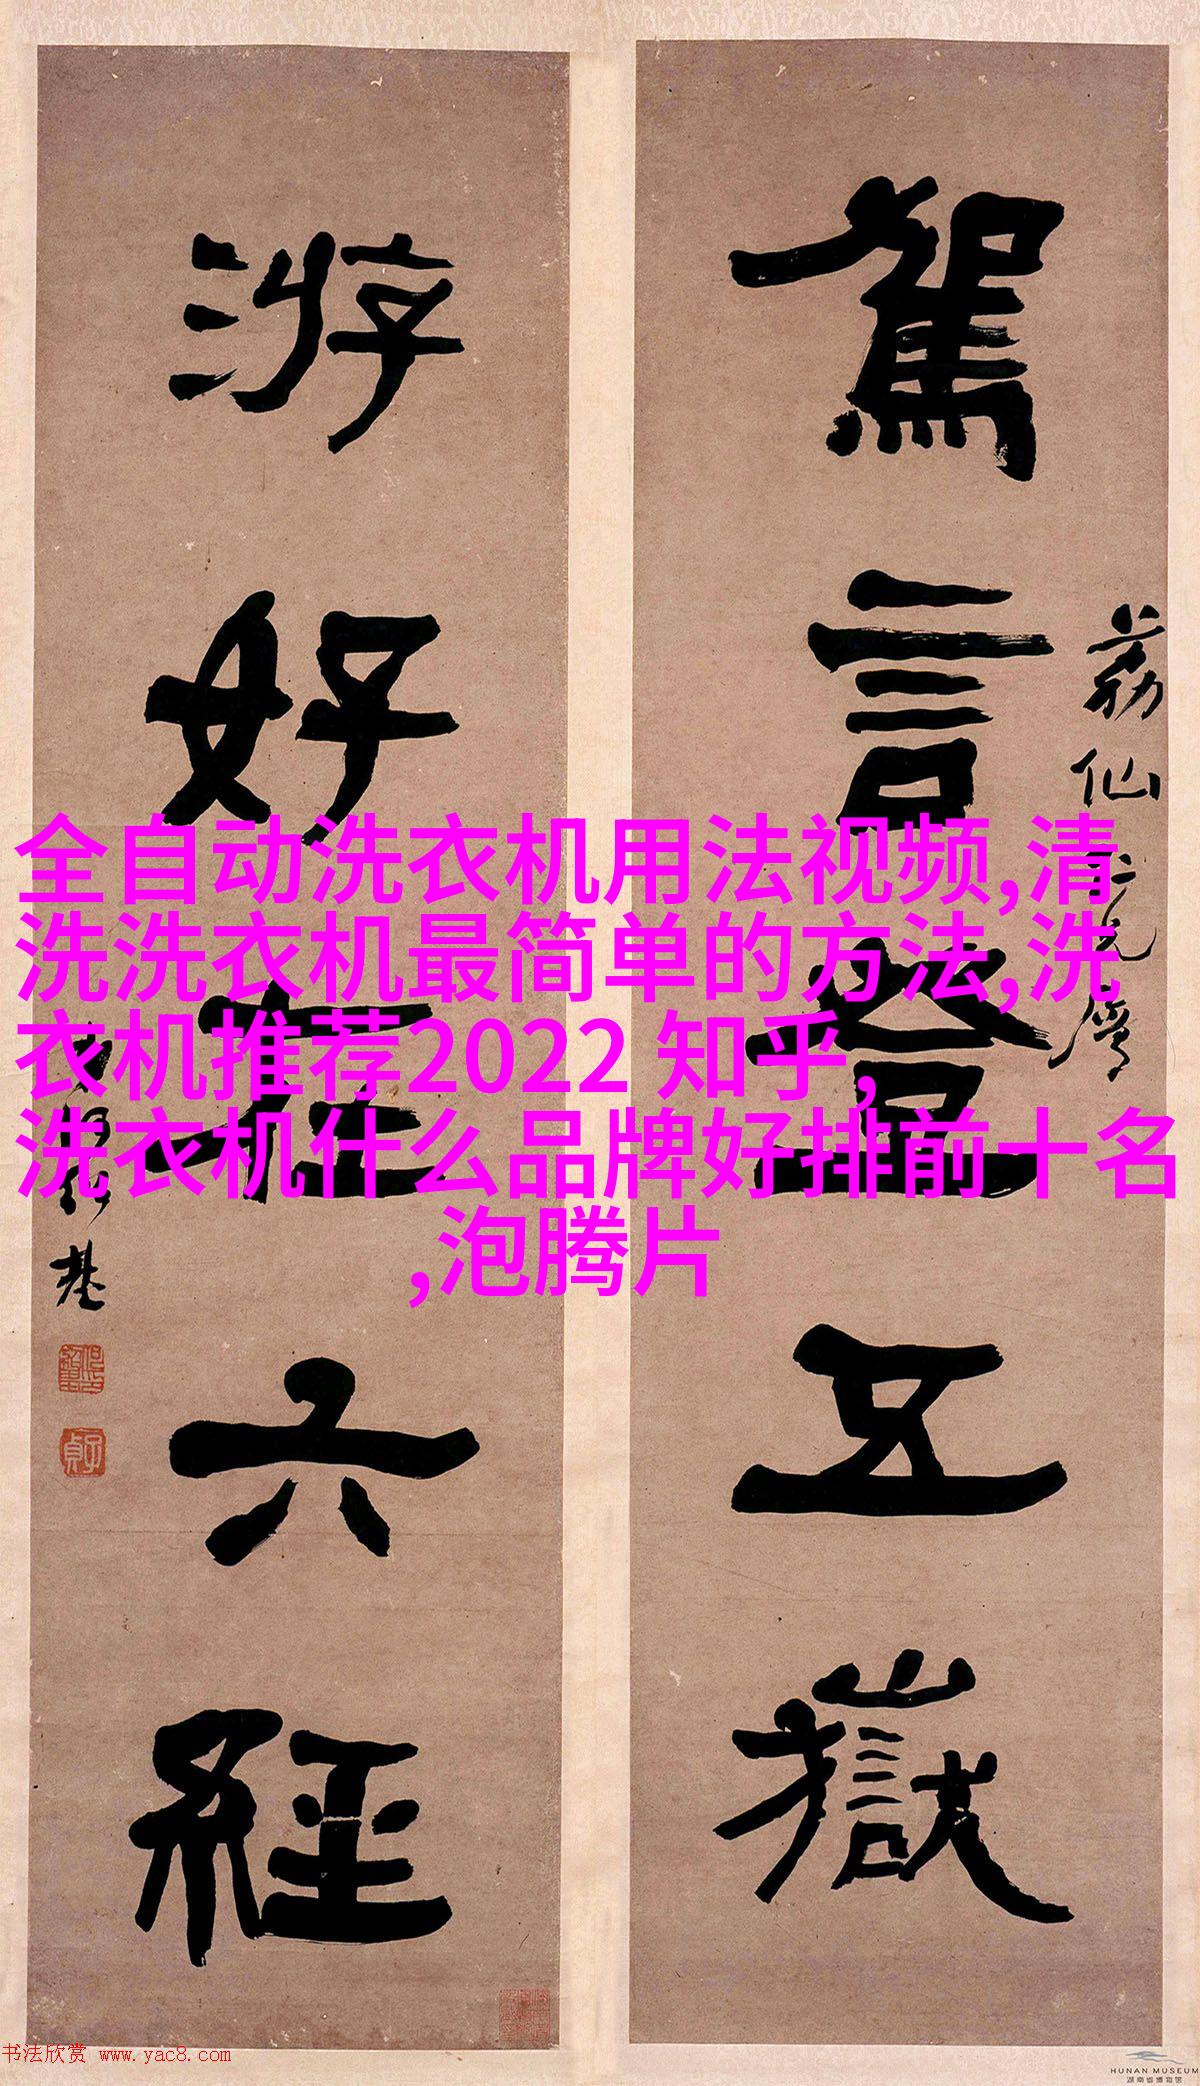 駕言登五嶽
荔仙仁兄屬
游好在六經
何紹基
全自动洗衣机用法视频,清
洗洗衣机最简单的方法,洗
衣机推荐2022 知乎,
洗衣机什么品牌好排前十名
,泡腾片
书法欣赏 www.yac8.com
HUNAN MUSEUM
湖南省博物馆